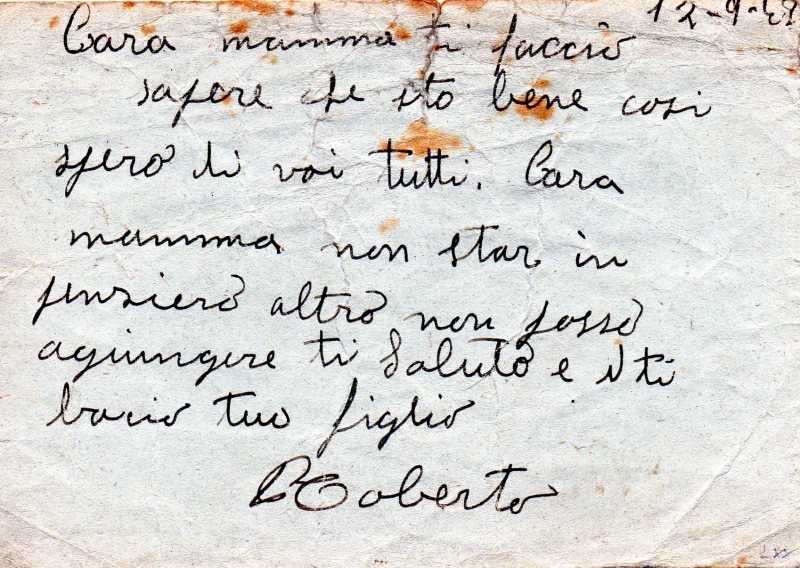 12-9-43
Cara mamma ti faccio
sapere che sto bene cosi
spero di voi tutti. Cara
mamma non star in
pensiero altro non posso
agiungere ti Saluto e ti
bacio tuo figlio
Roberto